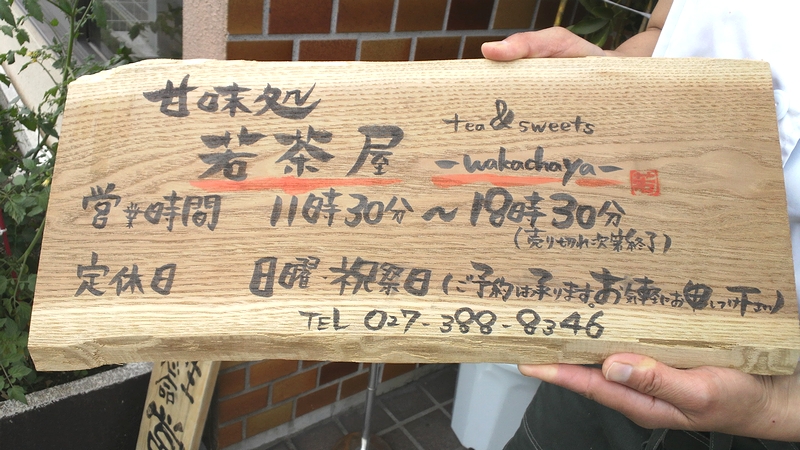 甘味処
tea & sweets
若茶屋 -wakachaya- 若
営業時間 11時30分～18時30分
(売り切れ次第終了)
定休日 日曜 祝祭日 (ご予約は承ります。お気軽にお申しつけ下さい)
TEL 027-388-8346